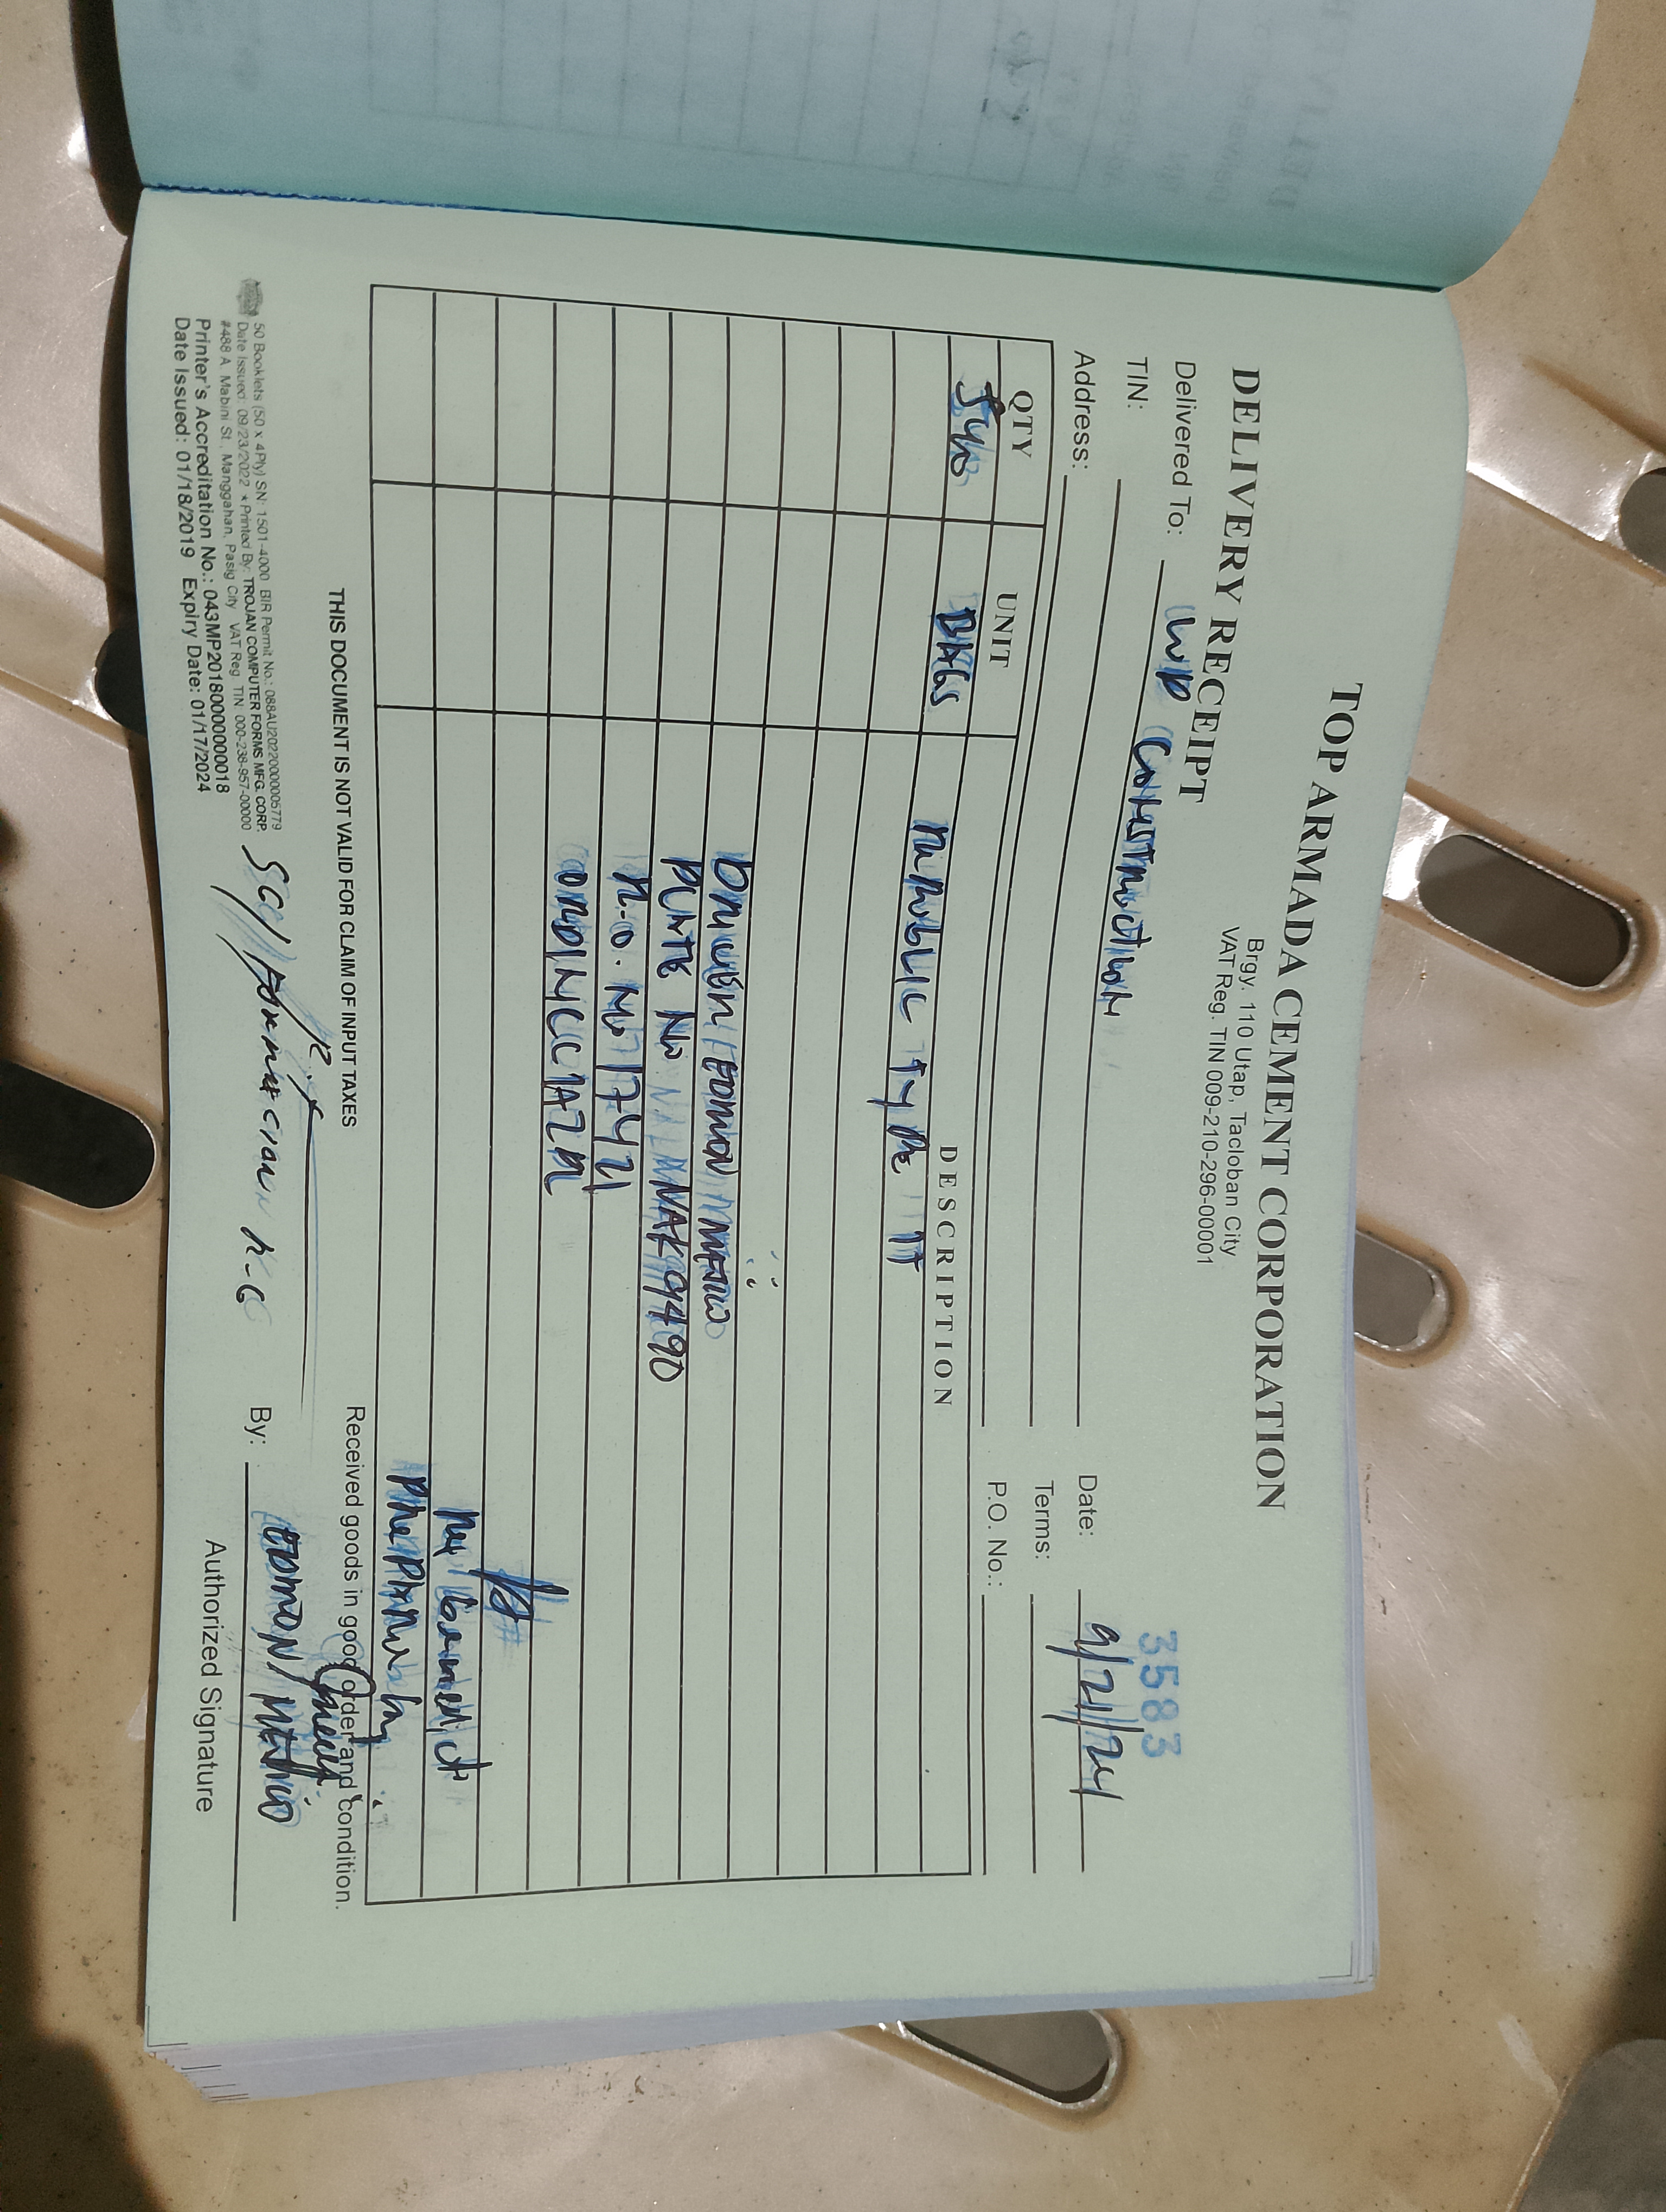 TOP ARMADA CEMENT CORPORATION
Brgy. 110 Utap, Tacloban City
VAT Reg. TIN 009-210-296-00001
DELIVERY RECEIPT
3583
Delivered To: LWD CONSTRUCTION
Date: 9/21/24
TIN:
Terms:
Address:
P.O. No.:
QTY UNIT DESCRIPTION
540 BAGS REPUBLIC TYPE 1T
DRIVER/EDMON
PLATE NO NAK 9490
P.O. NO 17421
THIS DOCUMENT IS NOT VALID FOR CLAIM OF INPUT TAXES
Received goods in good order and condition.
50 Booklets (50 x 4Ply) SN: 1501-4000 BIR Permit No.: 088AU20220000005779
Date Issued: 09/23/2022 * Printed By: TROJAN COMPUTER FORMS MFG. CORP.
#488 A. Mabini St., Manggahan, Pasig City VAT Reg. TIN 000-238-957-00000
Printer's Accreditation No.: 043MP20180000000018
Date Issued: 01/18/2019 Expiry Date: 01/17/2024
By: EDMON
Authorized Signature